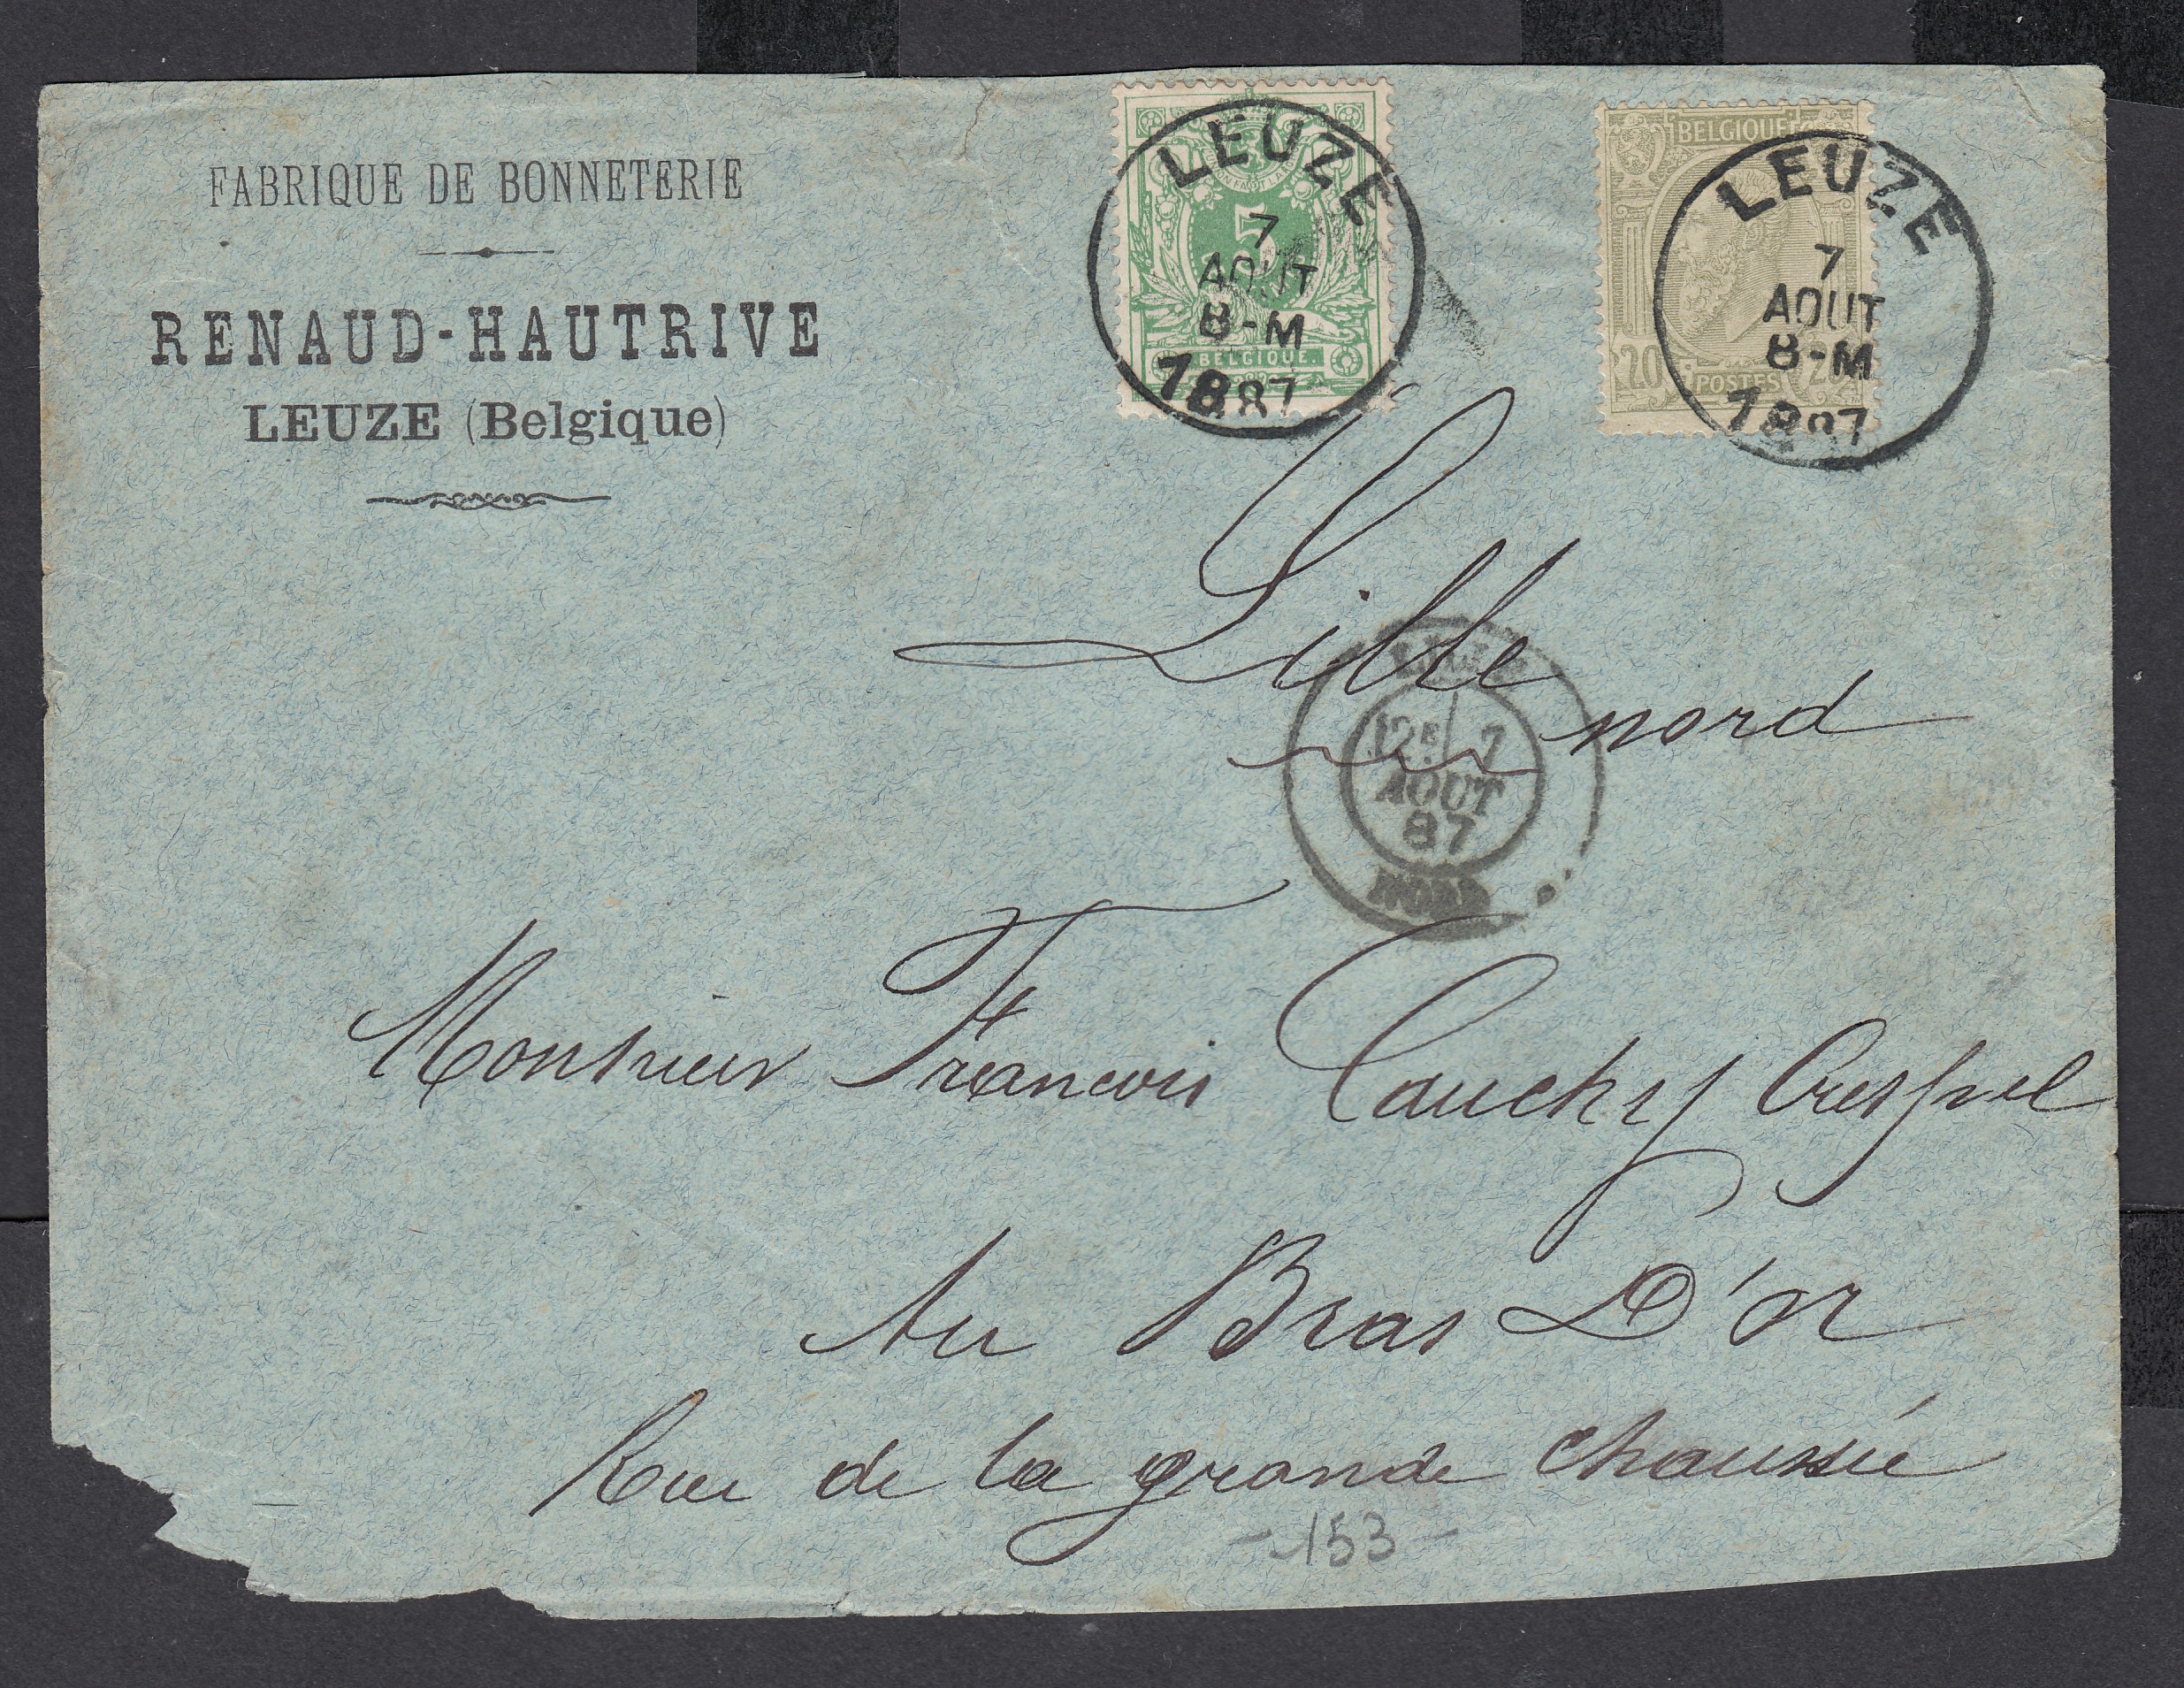 FABRIQUE DE BONNETERIE
RENAUD-HAUTRIVE
LEUZE (Belgique)
5
BELGIQUE.
LEUZE
7
AOUT
8-M
1887
BELGIQUE
20 POSTES 20
LEUZE
7
AOUT
8-M
1887
Lille
nord
LILLE
12E 7
AOUT
87
NORD
Monsieur Francois Cauchy Crespel
Au Bras D'or
Rue de la grande chaussée
- 153 -